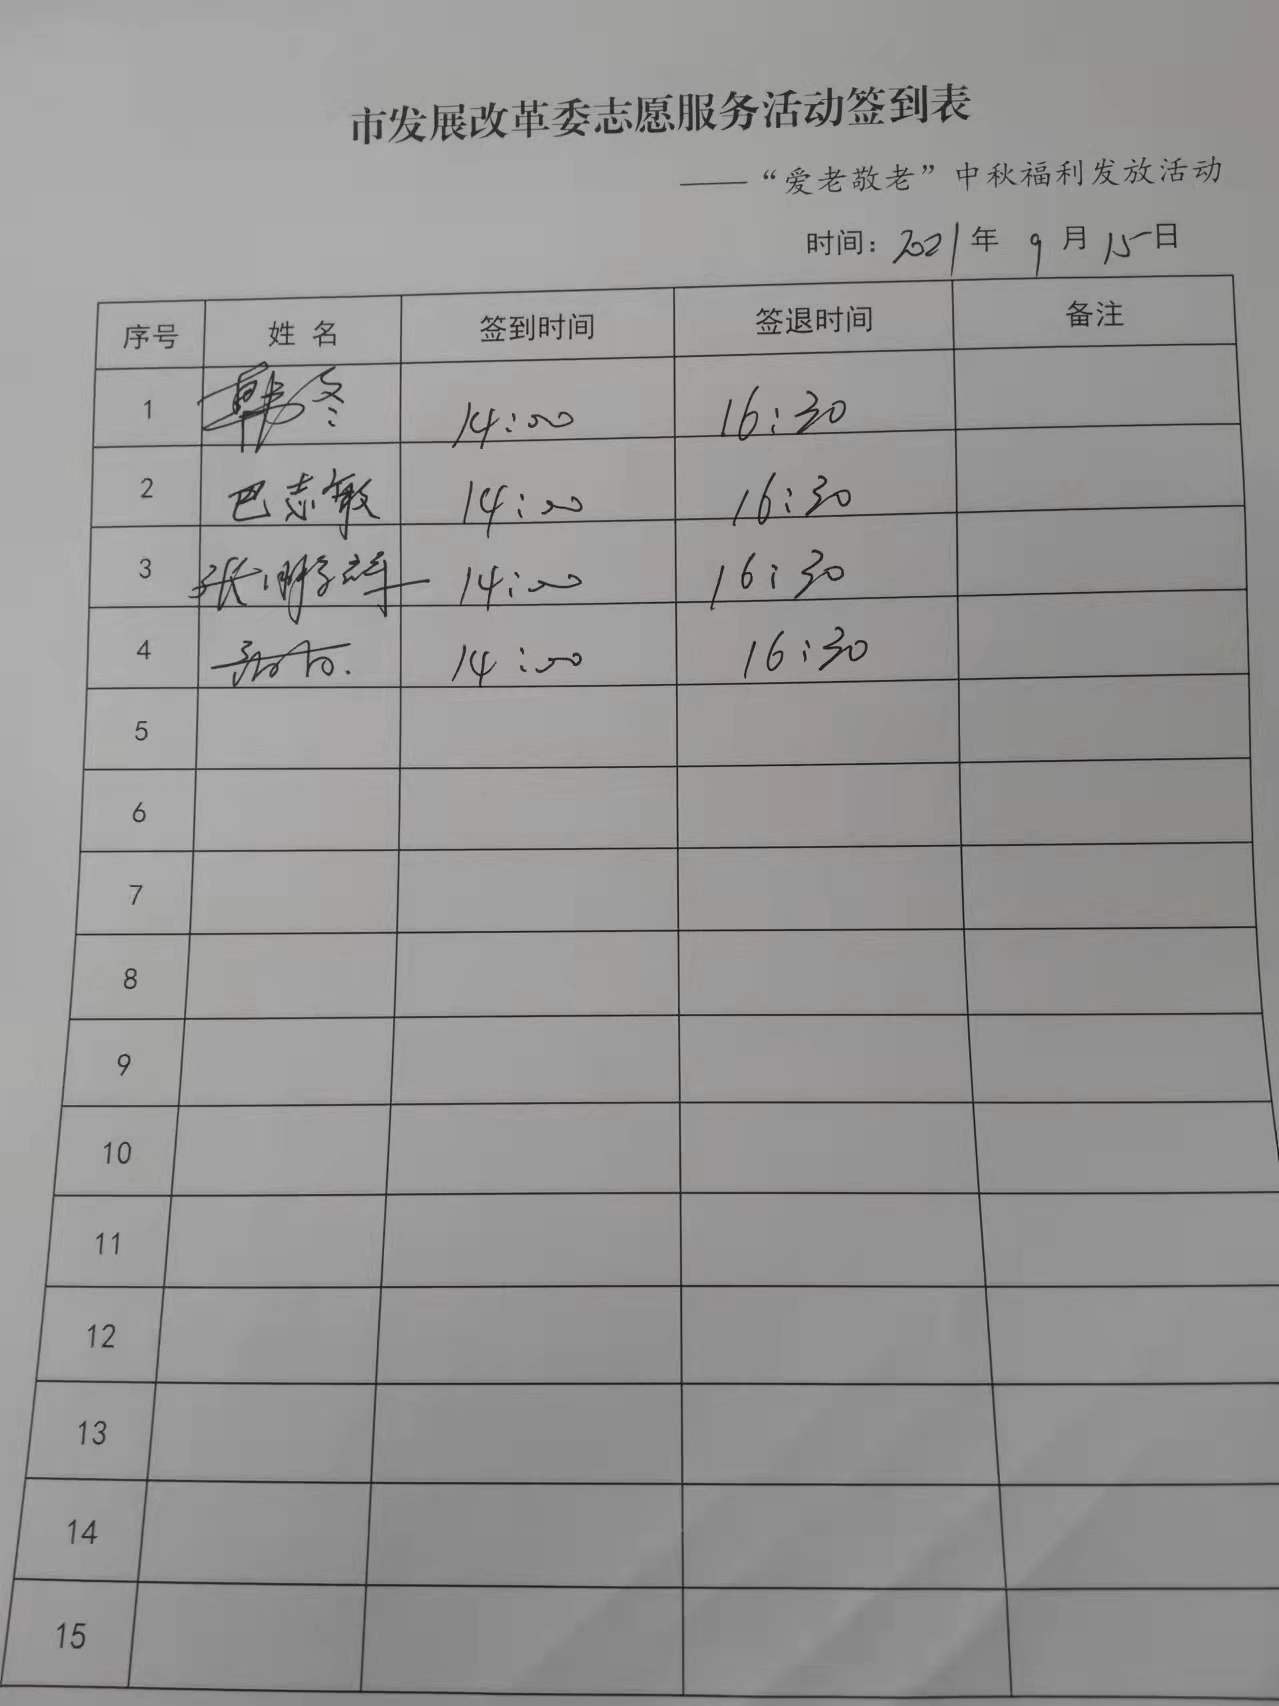 市发展改革委志愿服务活动签到表
——“爱老敬老”中秋福利发放活动
时间：2021年 9月 15日
序号 姓 名 签到时间 签退时间 备注
1 韩冬 14:00 16:30
2 巴志敏 14:00 16:30
3 张 14:00 16:30
4 14:00 16:30
5
6
7
8
9
10
11
12
13
14
15